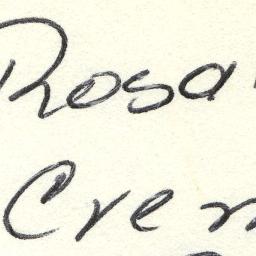 Rosa
Crem